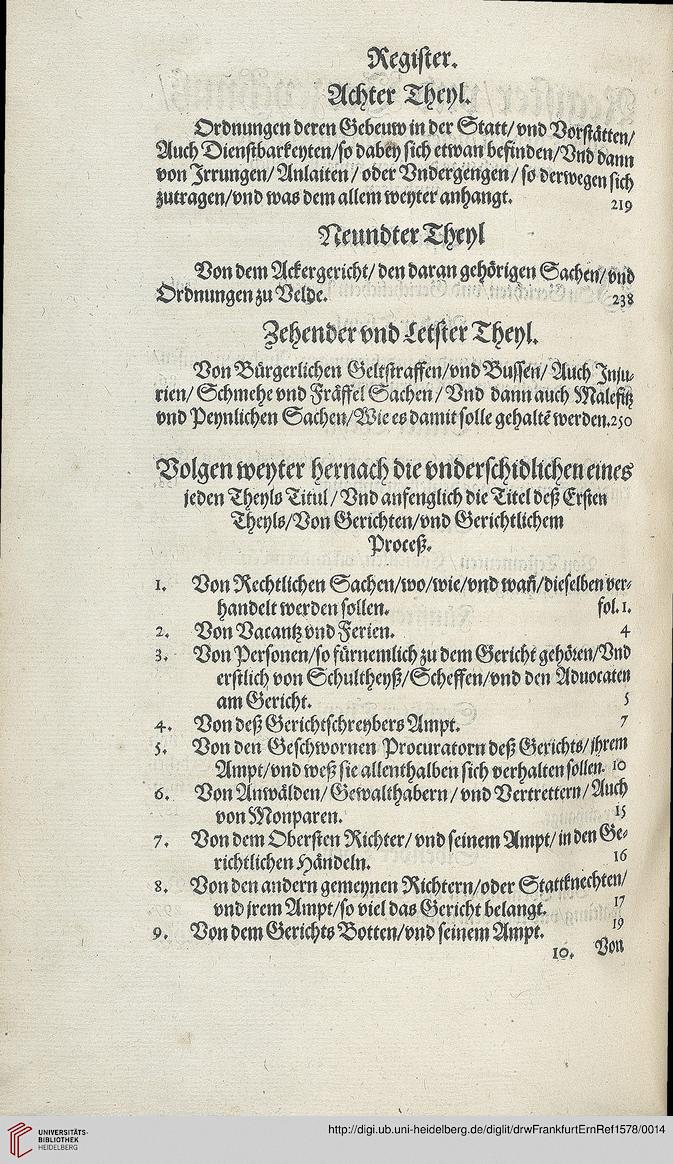 Register.
Achter Theyl.
Ordnungen deren Gebeuw in der Statt/ vnd Vorstätten/
Auch Dienstbarkeyten/so dabey sich etwan befinden/Vnd dann
von Irrungen/ Anlaiten / oder Vndergengen / so derwegen sich
zutragen/vnd was dem allem weyter anhangt. 219
Neundter Theyl
Von dem Ackergericht/ den daran gehörigen Sachen/ vnd
Ordnungen zu Velde. 238
Zehender vnd Letster Theyl.
Von Bürgerlichen Geltstraffen/vnd Bussen/ Auch Inju-
rien/ Schmehe vnd Fräffel Sachen / Vnd dann auch Malefitz
vnd Peynlichen Sachen/Wie es damit solle gehaltē werden. 250
Volgen weyter hernach die vnderschidlichen eines
jeden Theyls Titul / Vnd anfenglich die Titel deß Ersten
Theyls/Von Gerichten/vnd Gerichtlichem
Proceß.
1. Von Rechtlichen Sachen/wo/wie/vnd wañ/dieselben ver-
handelt werden sollen. fol. 1.
2. Von Vacantz vnd Ferien. 4
3. Von Personen/so fürnemlich zu dem Gericht gehören/Vnd
erstlich von Schultheyß/Scheffen/vnd den Aduocaten
am Gericht. 5
4. Von deß Gerichtschreybers Ampt. 7
5. Von den Geschwornen Procuratorn deß Gerichts/ jhrem
Ampt/vnd weß sie allenthalben sich verhalten sollen. 10
6. Von Anwälden/ Gewalthabern / vnd Vertrettern/ Auch
von Monparen. 15
7. Von dem Obersten Richter/ vnd seinem Ampt/ in den Ge-
richtlichen Händeln. 16
8. Von den andern gemeynen Richtern/oder Stattknechten/
vnd jrem Ampt/so viel das Gericht belangt. 17
9. Von dem Gerichts Botten/vnd seinem Ampt. 19
10. Von
UNIVERSITÄTS-
BIBLIOTHEK
HEIDELBERG
http://digi.ub.uni-heidelberg.de/diglit/drwFrankfurtErnRef1578/0014